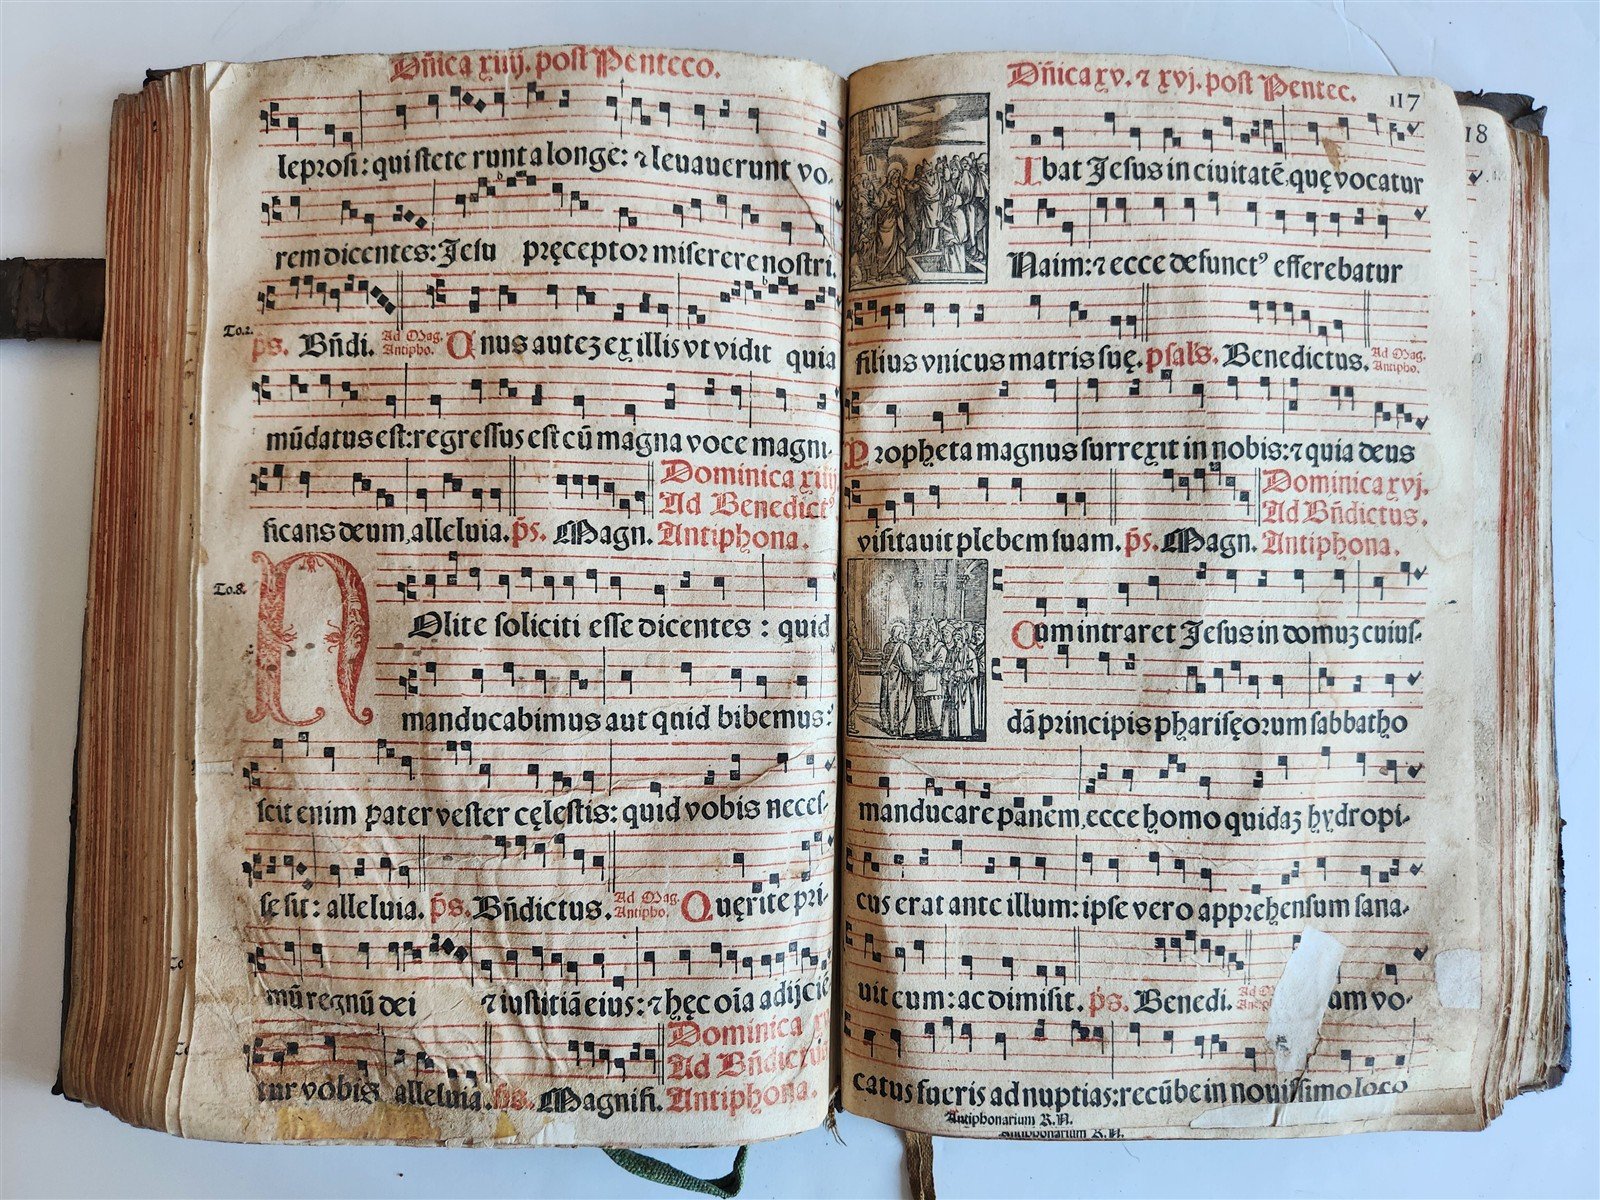 Dñica xiiij. post Penteco.
leprosi: qui stete runt a longe: ⁊ leuauerunt vo-
rem dicentes: Jesu pręceptor miserere nostri.
To.2.
ps. Bñdi. Ad Mag. Antipho. Unus autez ex illis vt vidit quia
mūdatus est: regressus est cū magna voce magni-
ficans deum, alleluia. ps. Magn.
Dominica xiiij
Ad Benedict⁹
Antiphona.
To.8.
NOlite soliciti esse dicentes : quid
manducabimus aut quid bibemus:
scit enim pater vester cęlestis: quid vobis neces-
se sit: alleluia. ps. Bñdictus. Ad Mag. Antipho. Quęrite pri-
mū regnū dei ⁊ iustitiā eius: ⁊ hęc oīa adijciē-
tur vobis alleluia. ps. Magnifi.
Dominica xv
Ad Bñdictus
Antiphona.
Dñica xv. ⁊ xvj. post Pentec.
117
18
Ibat Jesus in ciuitatē, quę vocatur
Naim: ⁊ ecce defunct⁹ efferebatur
filius vnicus matris suę. psal's. Benedictus. Ad Mag. Antipho.
Propheta magnus surrexit in nobis: ⁊ quia deus
visitauit plebem suam. ps. Magn.
Dominica xvj.
Ad Bñdictus.
Antiphona.
Cum intraret Jesus in domuz cuius-
dā principis pharisęorum sabbatho
manducare panem, ecce homo quidaz hydropi-
cus erat ante illum: ipse vero apprehensum sana-
uit eum: ac dimisit. ps. Benedi. am vo-
catus fueris ad nuptias: recūbe in nouissimo loco
Antiphonarium R.N.
Antiphonarium R.N.